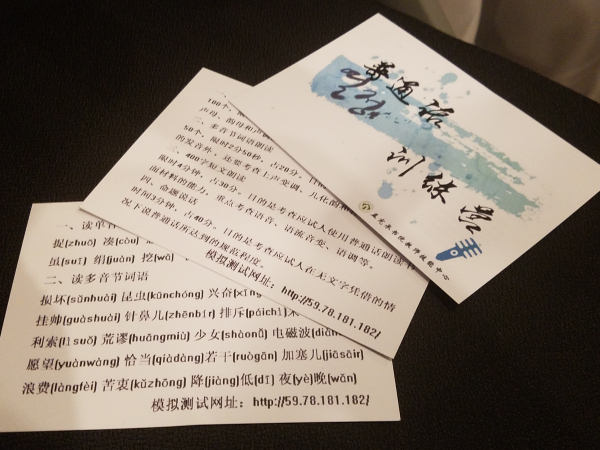 普通话
训练营
孟宪承书院教师技能中心
100个,
声母、韵母和声
二、多音节词语朗读
50个,限时2分50秒,占20分。目
的发音外,还要考查上声变调、儿化的
三、400字短文朗读
限时4分钟,占30分。目的是考查应试人使用普通话朗读
面材料的能力,重点考查语音、语流音变、语调等。
四、命题说话
时间3分钟,占40分。目的是考查应试人在无文字凭借的情
况下说普通话所达到的规范程度。
模拟测试网址:http://59.78.181.182/
一、读单音
捉(zhuō) 凑(còu)
虽(suī) 绢(juàn) 挖(wā)
二、读多音节词语
损坏(sǔnhuài) 昆虫(kūnchóng) 兴奋(xīng
挂帅(guàshuài) 针鼻儿(zhēnbír) 排斥(páichì)
利索(lìsuǒ) 荒谬(huāngmiù) 少女(shàonǚ) 电磁波(diàn
愿望(yuànwàng) 恰当(qiàdàng) 若干(ruògān) 加塞儿(jiāsāir)
浪费(làngfèi) 苦衷(kǔzhōng) 降(jiàng)低(dī) 夜(yè)晚(wǎn)
模拟测试网址:http://59.78.181.182/